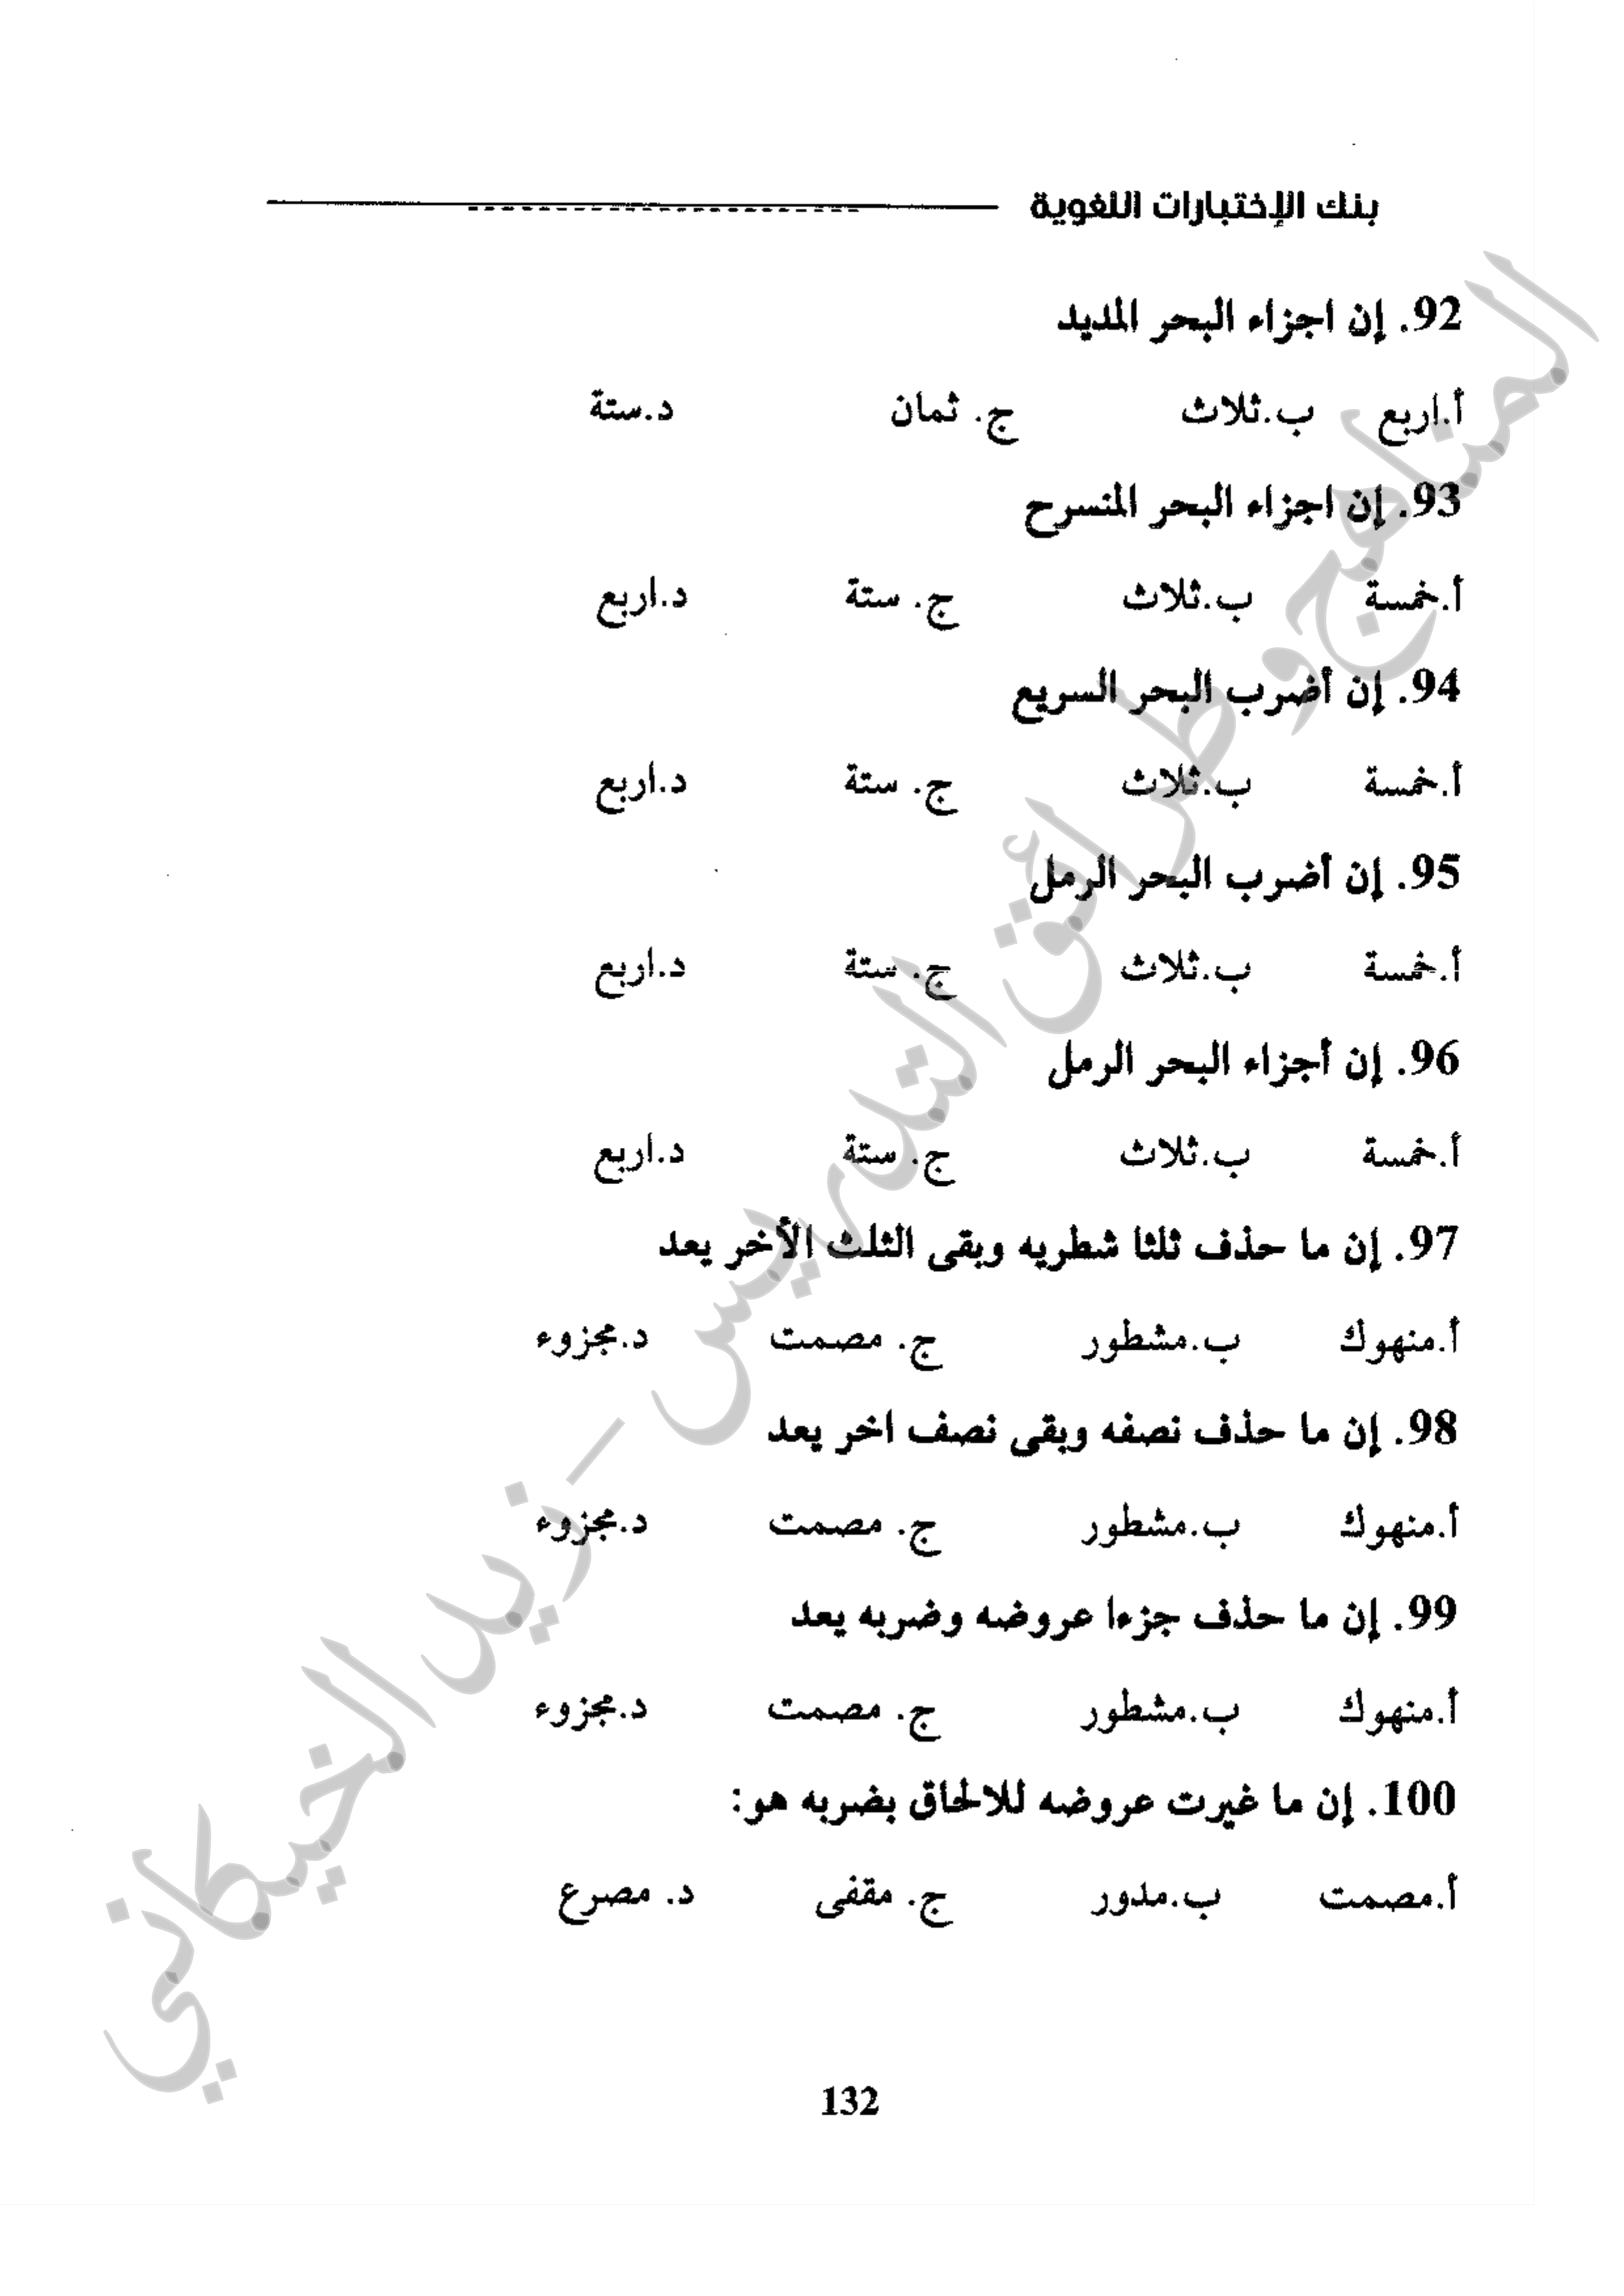 بنك الإختبارات اللغوية
92. إن اجزاء البحر المديد
أ.اربع ب.ثلاث ج. ثمان د.ستة
93. إن اجزاء البحر المنسرح
أ.خمسة ب.ثلاث ج. ستة د.اربع
94. إن أضرب البحر السريع
أ.خمسة ب.ثلاث ج. ستة د.اربع
95. إن أضرب البحر الرمل
أ.خمسة ب.ثلاث ج. ستة د.اربع
96. إن أجزاء البحر الرمل
أ.خمسة ب.ثلاث ج. ستة د.اربع
97. إن ما حذف ثلثا شطريه وبقى الثلث الأخر يعد
أ.منهوك ب.مشطور ج. مصمت د.مجزوء
98. إن ما حذف نصفه وبقى نصف اخر يعد
أ.منهوك ب.مشطور ج. مصمت د.مجزوء
99. إن ما حذف جزءا عروضه وضربه يعد
أ.منهوك ب.مشطور ج. مصمت د.مجزوء
100. إن ما غيرت عروضه للالحاق بضربه هو:
أ.مصمت ب.مدور ج. مقفى د. مصرع
132
المناهج وطرائق التدريس - زيد الخيكاني